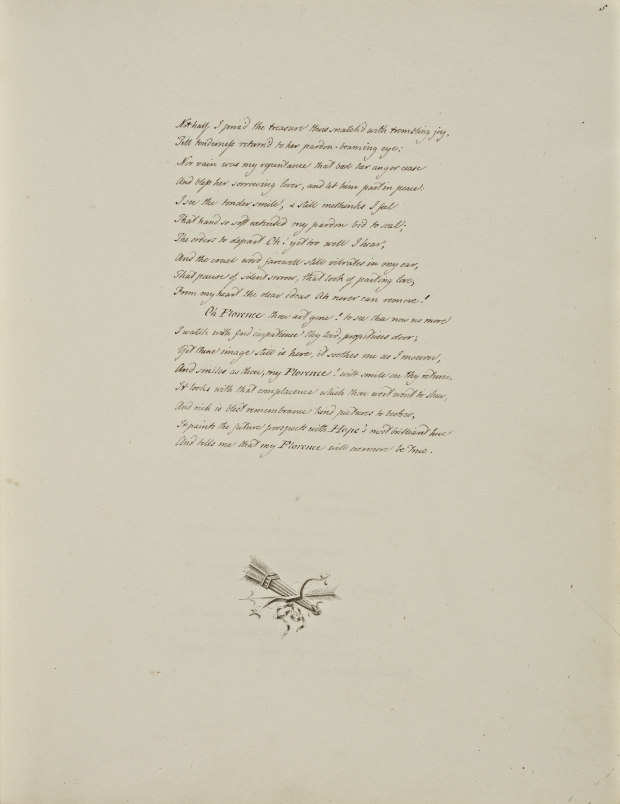 5
Not half I priz'd the treasure thus snatch'd with trembling joy,
Till tenderness return'd to her pardon-beaming eye;
Nor vain was my repentance that bad her anger cease
And bless her sorrowing lover, and let him part in peace:
I see the tender smile, & still methinks I feel
That hand so soft extended my pardon bid to seal;
The orders to depart Oh! yet too well I hear,
And the cruel word farewell still vibrates in my ear,
That pause of silent sorrow, that look of parting love,
From my heart the dear ideas Ah never can remove!
Oh Florence thou art gone! to see thee now no more
I watch with fond impatience thy lov'd, propitious door;
Yet thine image still is here, it soothes me as I mourn,
And smiles as thou, my Florence! wilt smile on thy return.
It looks with that complacence which thou wert wont to shew,
And rich is blest remembrance kind pictures to bestow,
It paints the future prospects with Hope's most brilliant hue
And tells me that my Florence will evermore be true.